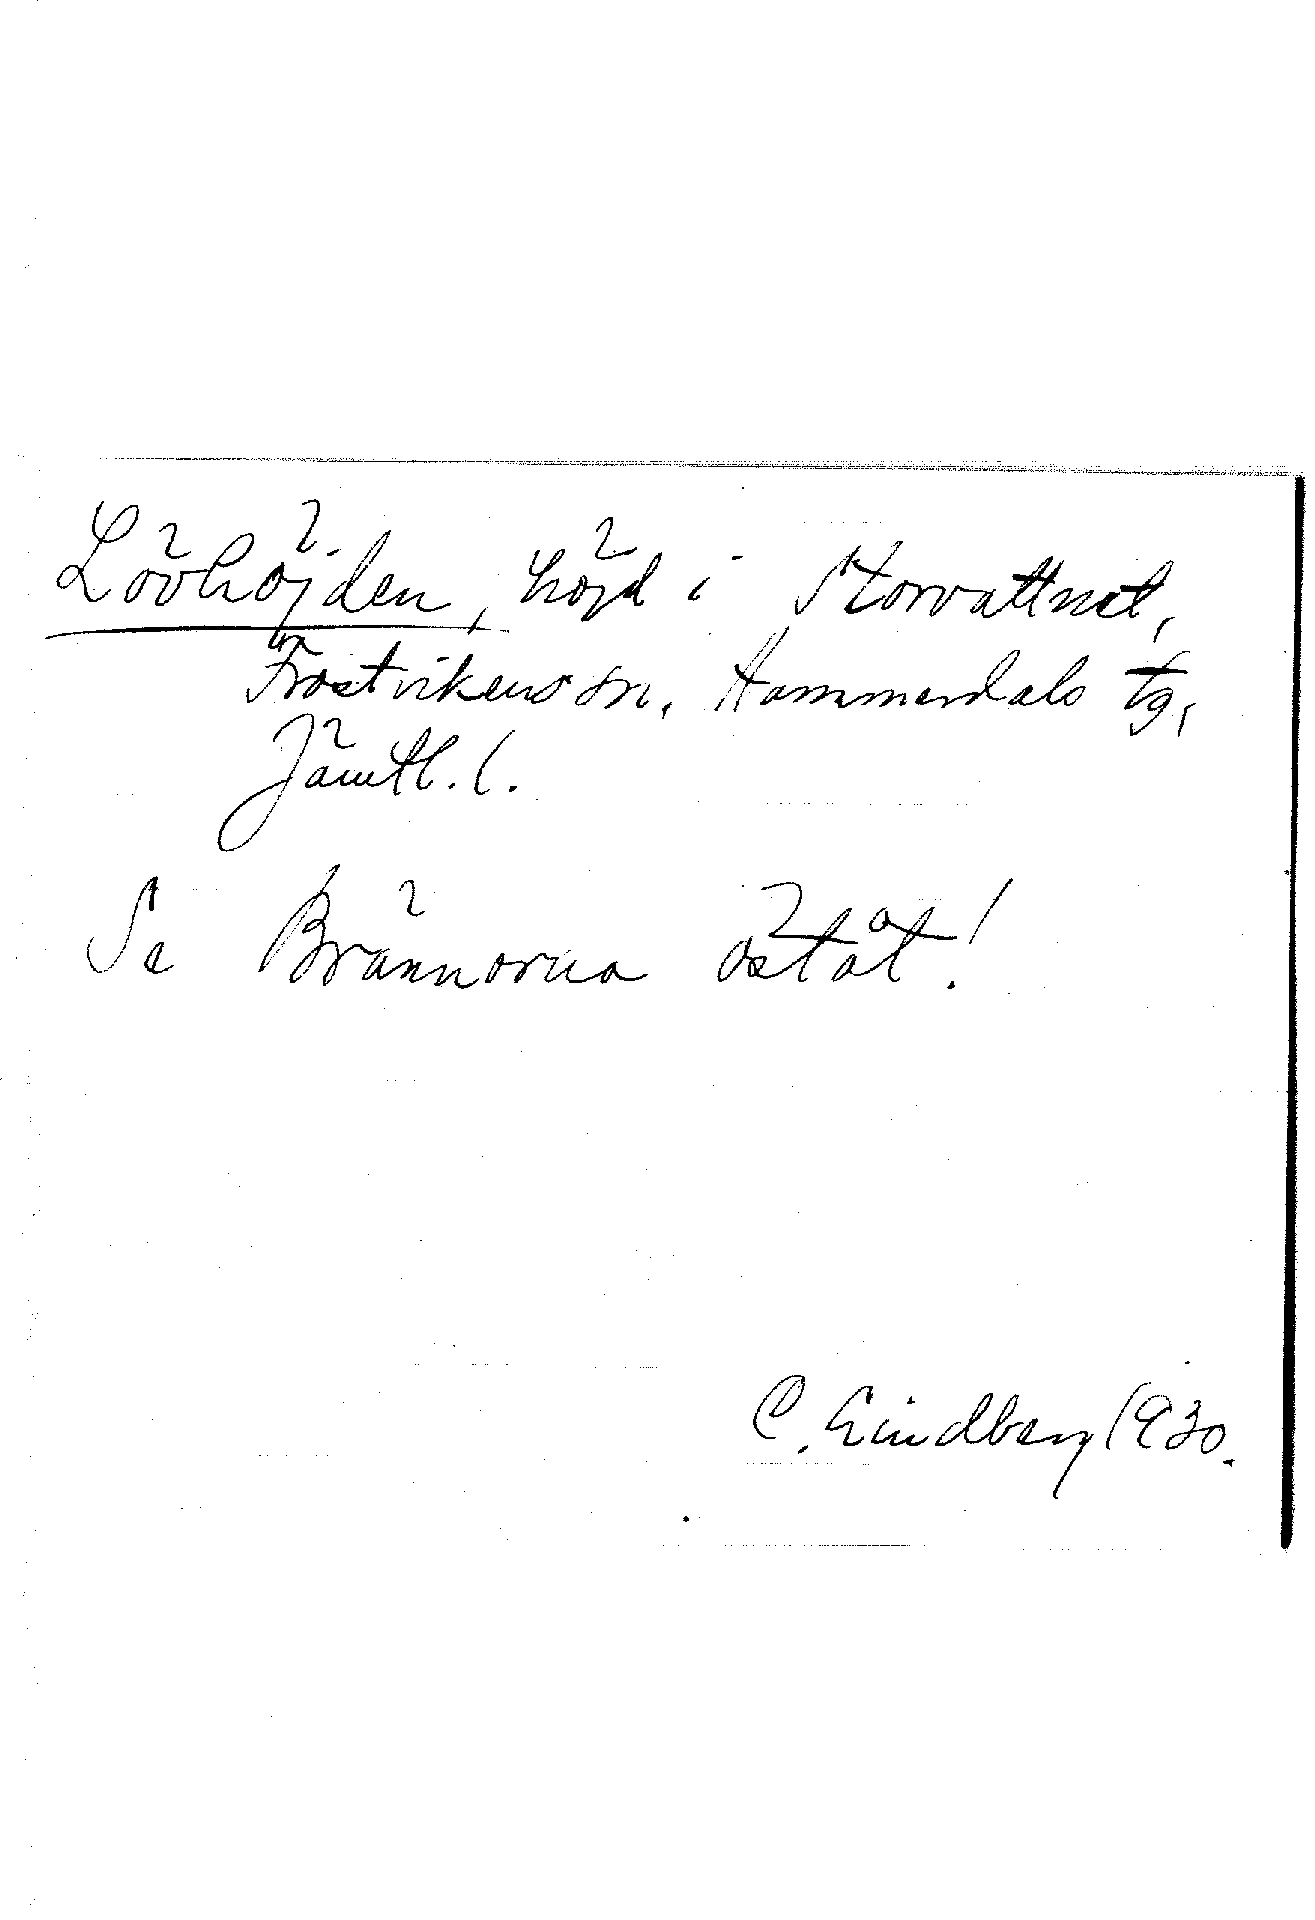 Lövhöjden, höjd i Storvattnet,
Frostvikens sn, Hammerdals tg,
Jämtl. l.
Se Brännorna öståt!
C. Lindberg 1930.